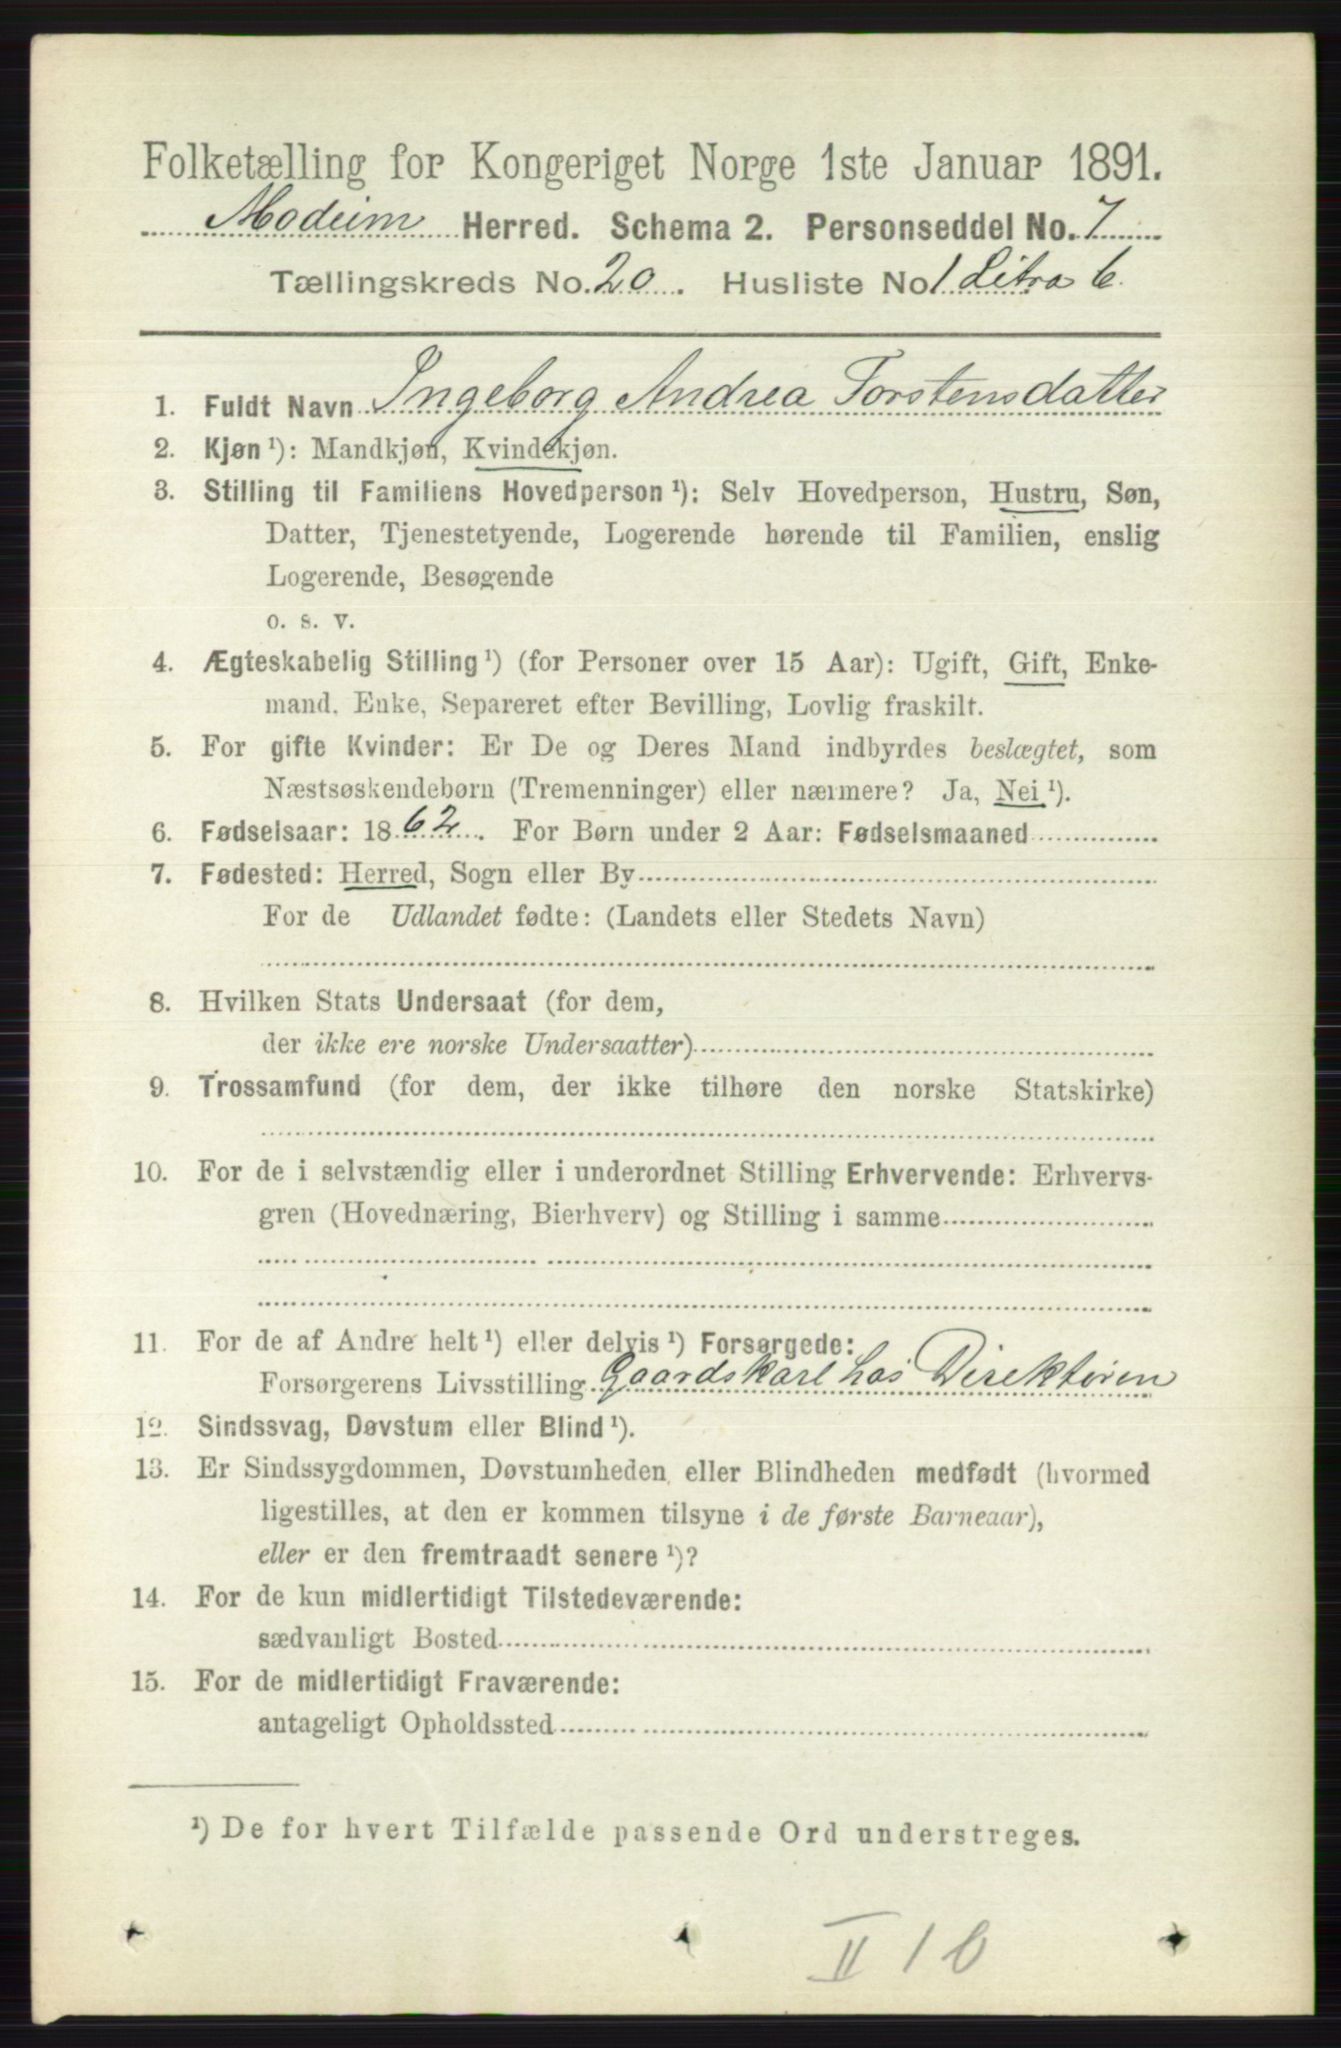 Folketælling for Kongeriget Norge 1ste Januar 1891.
Modum Herred. Schema 2. Personseddel No. 7
Tællingskreds No. 20. Husliste No 1 Litra b.
1. Fuldt Navn Ingeborg Andrea Torstensdatter
2. Kjøn¹): Mandkjøn, Kvindekjøn.
3. Stilling til Familiens Hovedperson¹): Selv Hovedperson, Hustru, Søn,
Datter, Tjenestetyende, Logerende hørende til Familien, enslig
Logerende, Besøgende
o. s. v.
4. Ægteskabelig Stilling¹) (for Personer over 15 Aar): Ugift, Gift, Enke-
mand, Enke, Separeret efter Bevilling, Lovlig fraskilt.
5. For gifte Kvinder: Er De og Deres Mand indbyrdes beslægtet, som
Næstsøskendebørn (Tremenninger) eller nærmere? Ja, Nei¹).
6. Fødselsaar: 1862. For Børn under 2 Aar: Fødselsmaaned
7. Fødested: Herred, Sogn eller By
For de Udlandet fødte: (Landets eller Stedets Navn)
8. Hvilken Stats Undersaat (for dem,
der ikke ere norske Undersaatter)
9. Trossamfund (for dem, der ikke tilhøre den norske Statskirke)
10. For de i selvstændig eller i underordnet Stilling Erhvervende: Erhvervs-
gren (Hovednæring, Bierhverv) og Stilling i samme
11. For de af Andre helt¹) eller delvis¹) Forsørgede:
Forsørgerens Livsstilling Gaardskarl hos Direktøren
12. Sindssvag, Døvstum eller Blind¹).
13. Er Sindssygdommen, Døvstumheden eller Blindheden medfødt (hvormed
ligestilles, at den er kommen tilsyne i de første Barneaar),
eller er den fremtraadt senere¹)?
14. For de kun midlertidigt Tilstedeværende:
sædvanligt Bosted
15. For de midlertidigt Fraværende:
antageligt Opholdssted
¹) De for hvert Tilfælde passende Ord understreges.
II 1 b